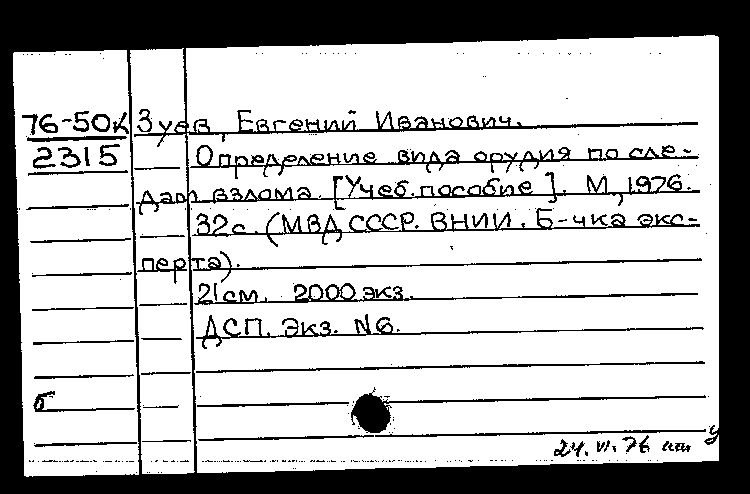 76-50к Зуев, Евгений Иванович.
2315 Определение вида орудия по сле-
дам взлома. [Учеб. пособие]. М., 1976.
32с. (МВД СССР. ВНИИ. Б-чка экс-
перта).
21см. 2000 экз.
ДСП. Экз. №6.
б
24.VI.76
у